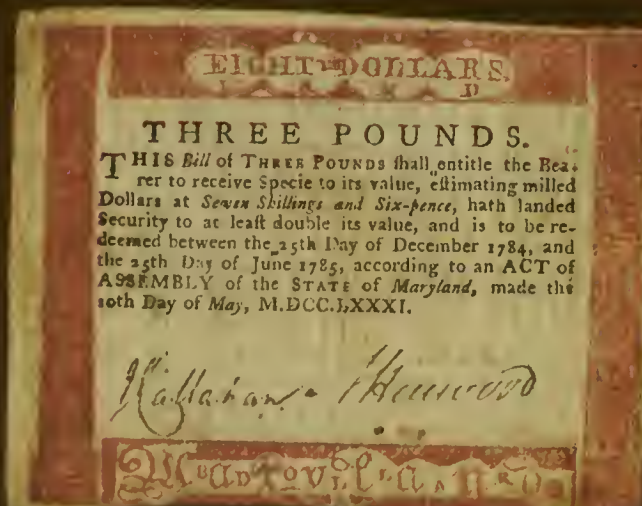 EIGHT DOLLARS.
THREE POUNDS.
THIS Bill of THREE POUNDS ſhall entitle the Bea-
rer to receive Specie to its value, eſtimating milled
Dollars at Seven Shillings and Six-pence, hath landed
Security to at leaſt double its value, and is to be re-
deemed between the 25th Day of December 1784, and
the 25th Day of June 1785, according to an ACT of
ASSEMBLY of the STATE of Maryland, made the
10th Day of May, M.DCC.LXXXI.
Callahan